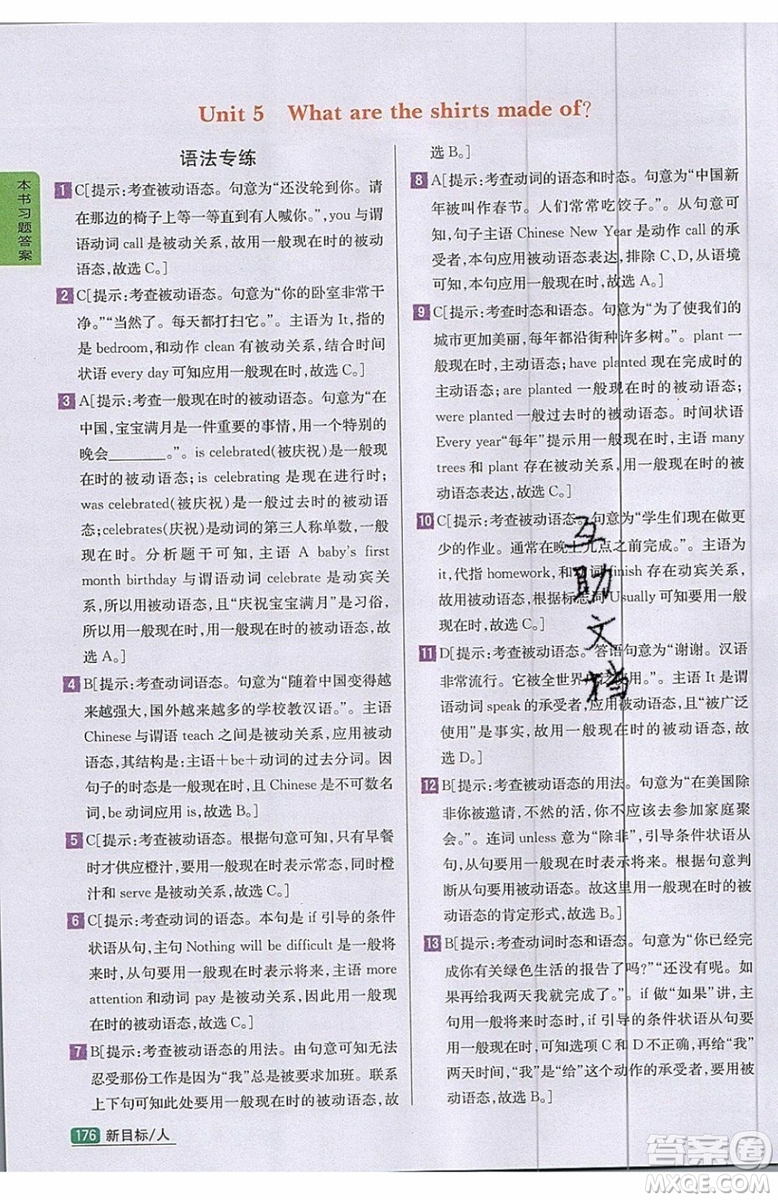 Unit 5 What are the shirts made of?
本书习题答案
语法专练
1 C[提示:考查被动语态。句意为“还没轮到你。请
在那边的椅子上等一等直到有人喊你。”,you与谓
语动词call是被动关系,故用一般现在时的被动
语态,故选C。]
2 C[提示:考查被动语态。句意为“你的卧室非常干
净。”“当然了。每天都打扫它。”。主语为It,指的
是bedroom,和动作clean有被动关系,结合时间
状语every day可知应用一般现在时的被动语态,
故选C。]
3 A[提示:考查一般现在时的被动语态。句意为“在
中国,宝宝满月是一件重要的事情,用一个特别的
晚会________。”。is celebrated(被庆祝)是一般现
在时的被动语态;is celebrating是现在进行时;
was celebrated(被庆祝)是一般过去时的被动语态;
celebrates(庆祝)是动词的第三人称单数,一般现
在时。分析题干可知,主语A baby's first
month birthday与谓语动词celebrate是动宾关系,
所以用被动语态,且“庆祝宝宝满月”是习俗,
所以用一般现在时,所以用一般现在时的被动语
态。故选A。]
4 B[提示:考查动词语态。句意为“随着中国变得越
来越强大,国外越来越多的学校教汉语。”。主语
Chinese与谓语teach之间是被动关系,应用被动
语态,其结构是:主语+be+动词的过去分词。因
句子的时态是一般现在时,且Chinese是不可数
名词,be动词应用is,故选B。]
5 C[提示:考查被动语态。根据句意可知,只有早餐
时才供应橙汁,要用一般现在时表示常态,同时橙
汁和serve是被动关系,故选C。]
6 C[提示:考查动词的语态。本句是if引导的条件
状语从句,主句Nothing will be difficult是一般将
来时,从句要用一般现在时表示将来,主语more
attention和动词pay是被动关系,故用一般现在
时的被动语态,故选C。]
7 B[提示:考查被动语态的用法。由句意可知无法
忍受那份工作是因为“我”总是被要求加班。联系
上下句可知此处要用一般现在时的被动语态,故
选B。]
8 A[提示:考查动词的语态和时态。句意为“中国新
年被叫作春节。人们常常吃饺子。”。从句意可
知,句子主语Chinese New Year是动作call的
承受者,本句应用被动语态表达,排除C、D,根据句
意,本句应用一般现在时,故选A。]
9 C[提示:考查时态和语态。句意为“为了使我们的
城市更加美丽,每年都沿街种许多树。”。plant
一般现在时,主动语态;have planted现在完成时的
主动语态;are planted一般现在时的被动语态;
were planted一般过去时的被动语态。时间状语
Every year“每年”提示用一般现在时,主语many
trees和plant存在被动关系,用一般现在时的被
动语态表达,故选C。]
10 C[提示:考查被动语态。句意为“学生们现在做更
少的作业。通常在晚上九点之前完成。”。主语为
it,代指homework,和动词finish存在动宾关系,
故用被动语态,根据标志词Usually可知要用一般
现在时,故选C。]
11 D[提示:考查被动语态。答语句意为“谢谢。汉语
非常流行。它被全世界广泛使用。”。主语It是谓
语动词speak的承受者,应用被动语态,且“被广泛
使用”是事实,故用一般现在时的被动语态,
故选D。]
12 B[提示:考查被动语态的用法。句意为“在美国除
非你被邀请,不然的话,你不应该去参加家庭聚
会。”。连词unless意为“除非”,引导条件状语
从句,从句要用一般现在时表示将来。根据句意
判断从句要用被动语态。故这里用一般现在时的
被动语态的肯定形式,故选B。]
13 B[提示:考查动词时态和语态。句意为“你已经完
成有关绿色生活的报告了吗?”“还没有呢。如果
再给我两天我就完成了。”。if当“如果”讲,主
句用一般将来时态时,if引导的条件状语从句要
用一般现在时,由此可知选项C和D不正确。“再
给我两天时间”,“我”是“给”这个动作的承受者,要
用被动语态,故选B。]
互助文档
176 新目标/人
答案圈
MXQE.COM